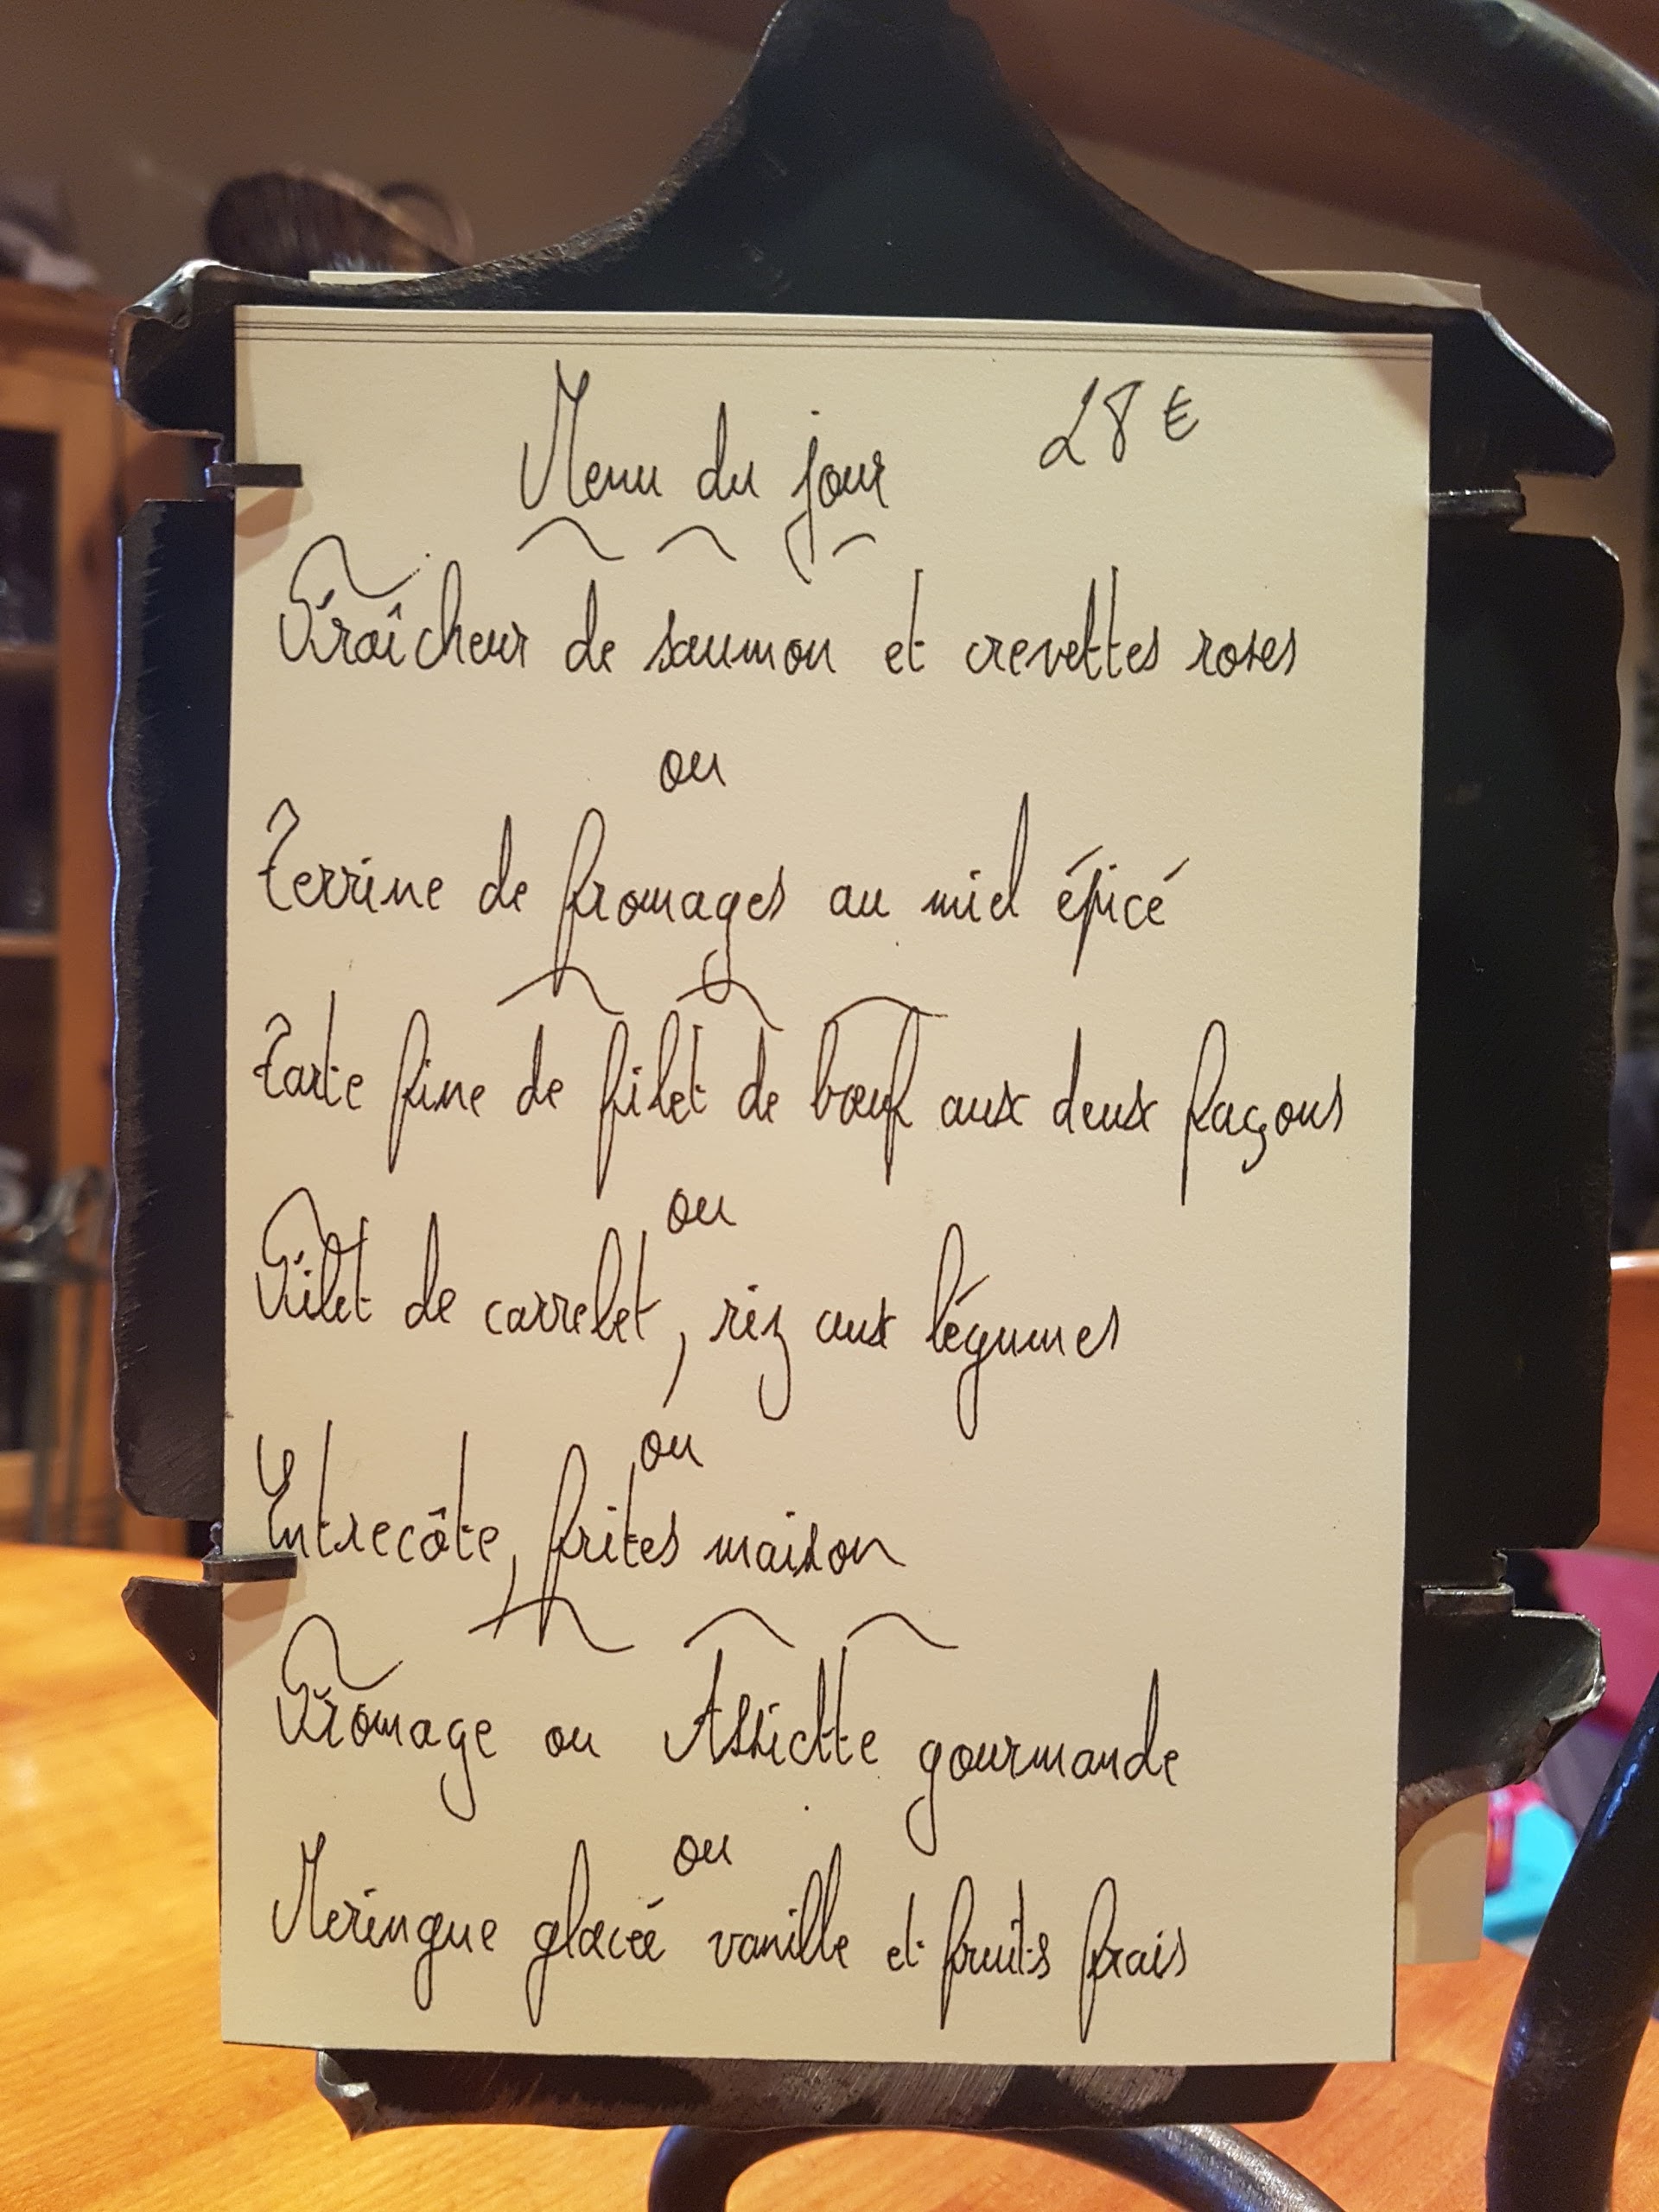 Menu du jour 28 €
Fraîcheur de saumon et crevettes roses
ou
Terrine de fromages au miel épicé
Tarte fine de filet de bœuf aux deux façons
ou
Filet de carrelet, riz aux légumes
ou
Entrecôte, frites maison
Fromage ou Assiette gourmande
ou
Meringue glacée vanille et fruits frais